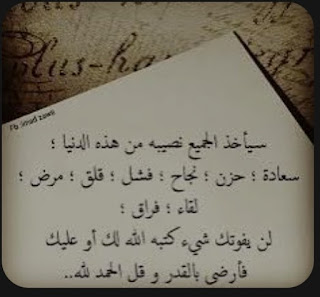 Plus-ha
Fb .imad zawa
سيأخذ الجميع نصيبه من هذه الدنيا ؛
سعادة ؛ حزن ؛ نجاح ؛ فشل ؛ قلق ؛ مرض ؛
لقاء ؛ فراق ؛
لن يفوتك شيء كتبه الله لك أو عليك
فأرضى بالقدر و قل الحمد لله..